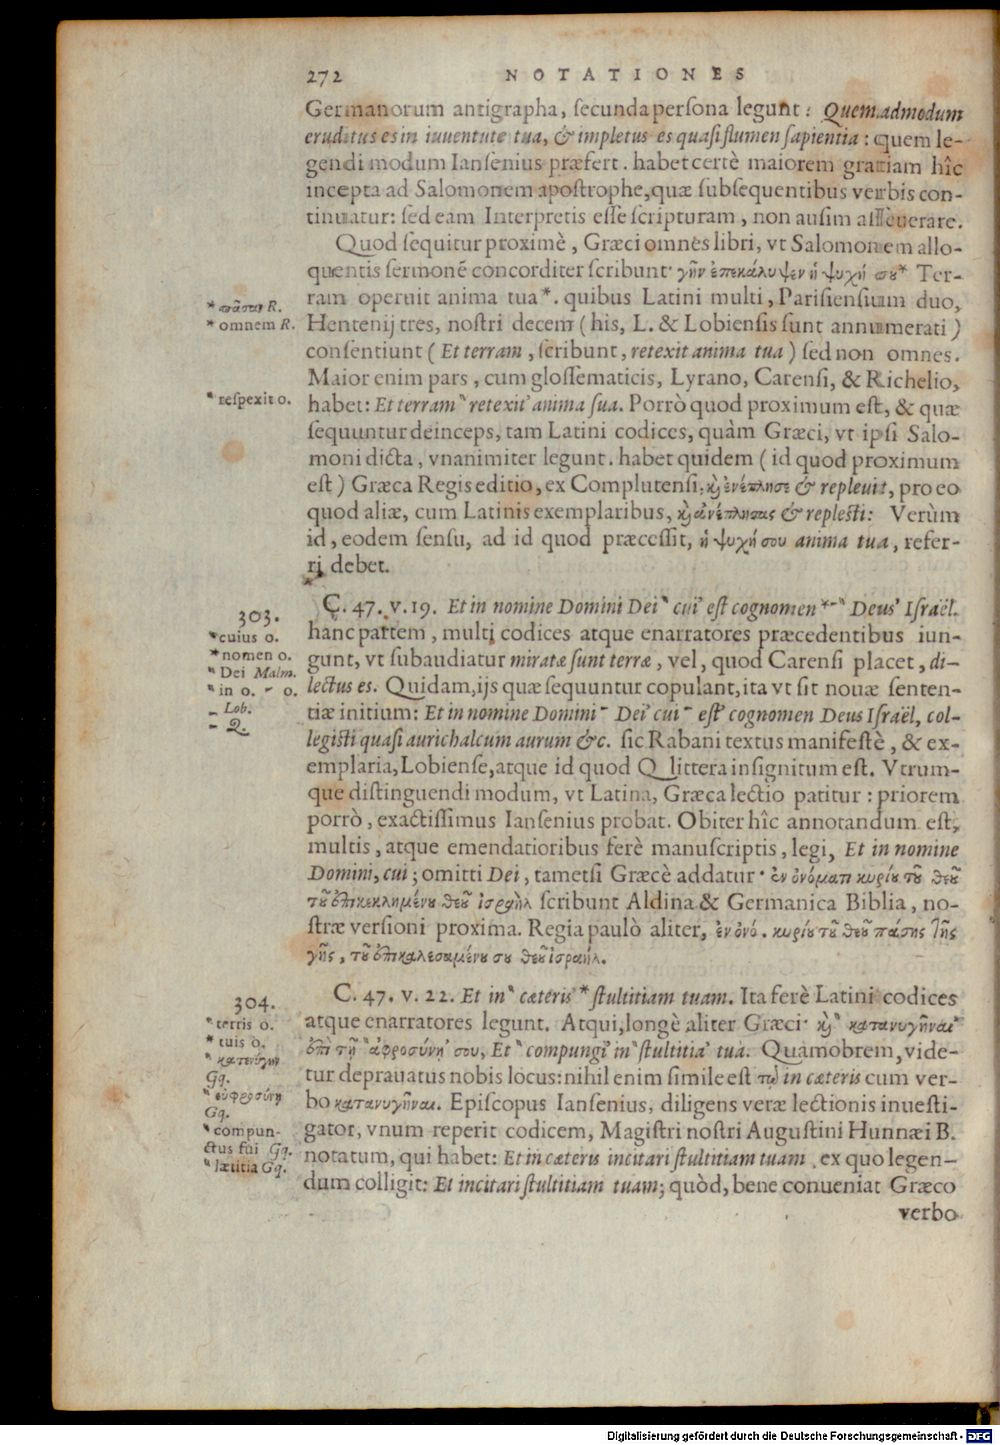 272 NOTATIONES
Germanorum antigrapha, ſecunda perſona legunt: Quemadmodum
eruditus es in iuuentute tua, & impletus es quaſi flumen ſapientia: quem le-
gendi modum Ianſenius præfert. habet certè maiorem gratiam hîc
incepta ad Salomonem apoſtrophe, quæ ſubſequentibus verbis con-
tinuatur: ſed eam Interpretis eſſe ſcripturam, non auſim aſſeuerare.
Quod ſequitur proximè, Græci omnes libri, vt Salomonem allo-
quentis ſermonẽ concorditer ſcribunt· γῆν ἐπεκάλυψεν ἡ ψυχή σου* Ter-
ram operuit anima tua*. quibus Latini multi, Pariſienſium duo,
* πᾶσαν R.
* omnem R.
Hentenij tres, noſtri decem (his, L. & Lobienſis ſunt annumerati)
conſentiunt (Et terram, ſcribunt, retexit anima tua) ſed non omnes.
Maior enim pars, cum gloſſematicis, Lyrano, Carenſi, & Richelio,
" reſpexit o.
habet: Et terram " retexit' anima ſua. Porrò quod proximum eſt, & quæ
ſequuntur deinceps, tam Latini codices, quàm Græci, vt ipſi Salo-
moni dicta, vnanimiter legunt. habet quidem (id quod proximum
eſt) Græca Regis editio, ex Complutenſi, καὶ ἐνέπλησε & repleuit, pro eo
quod aliæ, cum Latinis exemplaribus, καὶ ἀνέπλησας & repleſti: Verùm
id, eodem ſenſu, ad id quod præceſſit, ἡ ψυχή σου anima tua, refer-
ri debet.
303.
C. 47. v. 19. Et in nomine Domini Dei " cui' eſt cognomen *-" Deus' Iſraël.
* cuius o.
* nomen o.
" Dei Malm.
" in o. - o.
- Lob.
- Q.
hanc partem, multi codices atque enarratores præcedentibus iun-
gunt, vt ſubaudiatur miratæ ſunt terræ, vel, quod Carenſi placet, di-
lectus es. Quidam, ijs quæ ſequuntur copulant, ita vt ſit nouæ ſenten-
tiæ initium: Et in nomine Domini - Dei' cui - eſt' cognomen Deus Iſraël, col-
legiſti quaſi aurichalcum aurum &c. ſic Rabani textus manifeſtè, & ex-
emplaria, Lobienſe, atque id quod Q littera inſignitum eſt. Vtrum-
que diſtinguendi modum, vt Latina, Græca lectio patitur: priorem
porrò, exactiſſimus Ianſenius probat. Obiter hîc annotandum eſt,
multis, atque emendatioribus ferè manuſcriptis, legi, Et in nomine
Domini, cui; omitti Dei, tametſi Græcè addatur· ἐν ὀνόματι κυρίου τοῦ θεοῦ
τοῦ ἐπικεκλημένου θεοῦ ἰσραὴλ ſcribunt Aldina & Germanica Biblia, no-
ſtræ verſioni proxima. Regia paulò aliter, ἐν ὀνό. κυρίου τοῦ θεοῦ πάσης τῆς
γῆς, τοῦ ἐπικαλεσαμένου σου θεοῦ ἰσραήλ.
304.
C. 47. v. 22. Et in " cæteris * ſtultitiam tuam. Ita ferè Latini codices
" terris o.
* tuis o.
" κατενύγην
Gq.
" εὐφροσύνῃ
Gq.
" compun-
ctus fui Gq.
" lætitia Gq.
atque enarratores legunt. Atqui, longè aliter Græci· καὶ " κατανυγῆναι'
ἐπὶ τῇ " ἀφροσύνῃ' σου, Et " compungi' in " ſtultitia' tua. Quamobrem, vide-
tur deprauatus nobis locus: nihil enim ſimile eſt τῷ in cæteris cum ver-
bo κατανυγῆναι. Epiſcopus Ianſenius, diligens veræ lectionis inueſti-
gator, vnum reperit codicem, Magiſtri noſtri Auguſtini Hunnæi B.
notatum, qui habet: Et in cæteris incitari ſtultitiam tuam, ex quo legen-
dum colligit: Et incitari ſtultitiam tuam; quòd, bene conueniat Græco
verbo
Digitalisierung gefördert durch die Deutsche Forschungsgemeinschaft - DFG